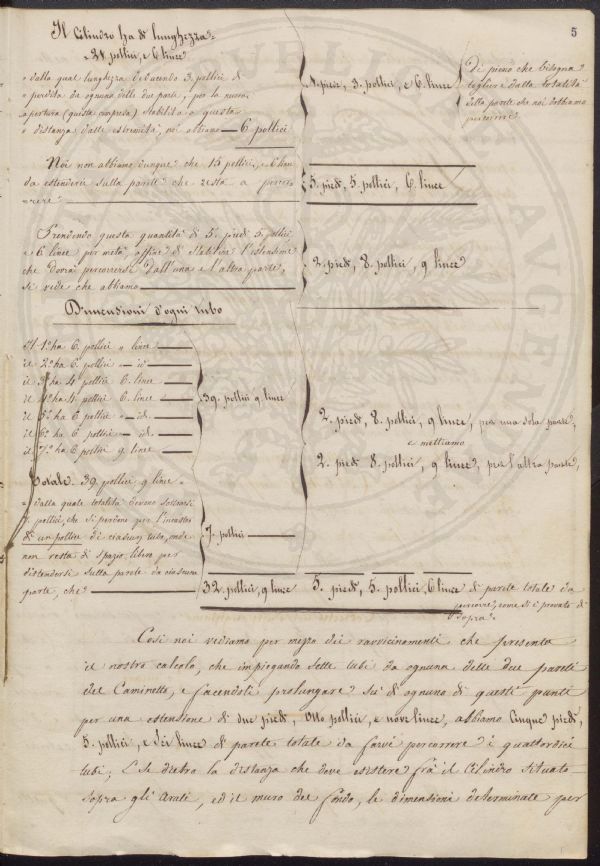 5
Il Cilindro ha di lunghezza
21 pollici, e 6 linee
dalla qual lunghezza devendo 3. pollici di
perdita da ognuna delle due parti, per la nuova
apertura (questa compresa) stabilita a questa
distanza dalle estremità, noi abbiamo — 6 pollici
4. piedi, 3. pollici, e 6. linee
Di pieno che bisogna
togliere dalla totalità
della parete che noi dobbiamo
percorrere
Noi non abbiamo dunque che 15 pollici, e 6 linee
da estendersi sulla parete che resta a percor=
rere
5. piedi, 5. pollici, 6. linee
Prendendo questa quantità di 5. piedi 5. pollici
e 6 linee per metà, affine di stabilire l'estensione
che dovrà percorrersi dall'una e l'altra parte,
si vede che abbiamo
2. piedi, 8. pollici, 9 linee
Dimensioni d'ogni tubo
Il 1.o ha 6. pollici " linee
il 2.o ha 6. pollici — id
il 3.o ha 4. pollici 6. linee
il 4.o ha 4. pollici 6. linee
il 5.o ha 6. pollici — id.
il 6.o ha 6. pollici — id.
il 7.o ha 6. pollici 9. linee
39. pollici 9. linee
2. piedi, 8. pollici, 9 linee, per una sola parte,
e mettiamo
2. piedi 8. pollici, 9 linee, per l'altra parte,
Totale. 39. pollici 9. linee
dalla quale totalità devono sottrarsi
7. pollici, che si perdono per l'incastro
di un pollice di ciascun tubo, onde
non resta di spazio libero per
distendersi sulla parete da ciascuna
parte, che
7. pollici
32. pollici, 9 linee
5. piedi, 5. pollici, 6 linee di parete totale da
percorrere, come si è provato di
sopra.
Così noi vediamo per mezzo dei ravvicinamenti che presenta
il nostro calcolo, che impiegando sette tubi da ognuna delle due pareti
del Caminetto, e facendoli prolungare su di ognuno di questi punti
per una estensione di due piedi, otto pollici, e nove linee, abbiamo cinque piedi,
5. pollici, e sei linee di parete totale da farvi percorrere i quattordici
tubi; E se dietro la distanza che deve esistere frà il Cilindro situato
sopra gli Arati, ed il muro del fondo, le dimensioni determinate per